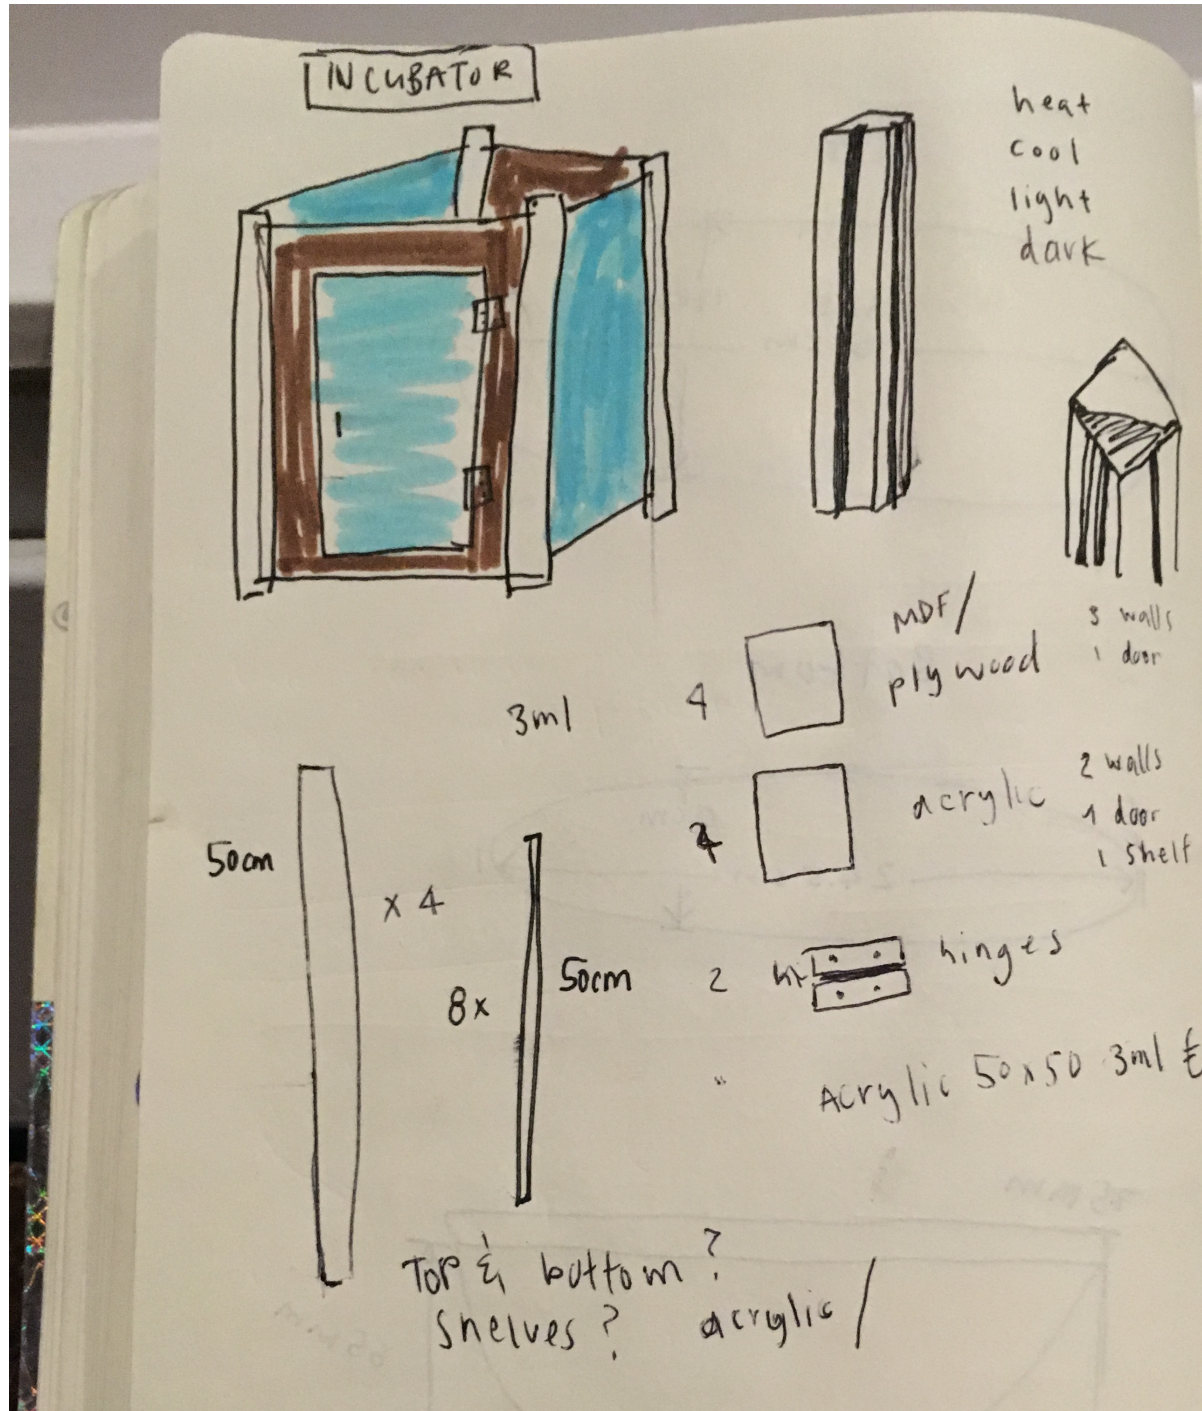 INCUBATOR
heat
cool
light
dark
MDF/
plywood
3 walls
1 door
3ml
4
acrylic
2 walls
1 door
1 shelf
4
50cm
x 4
8x
50cm
2
hinges
Acrylic 50x50 3ml
Top & bottom?
Shelves? acrylic /